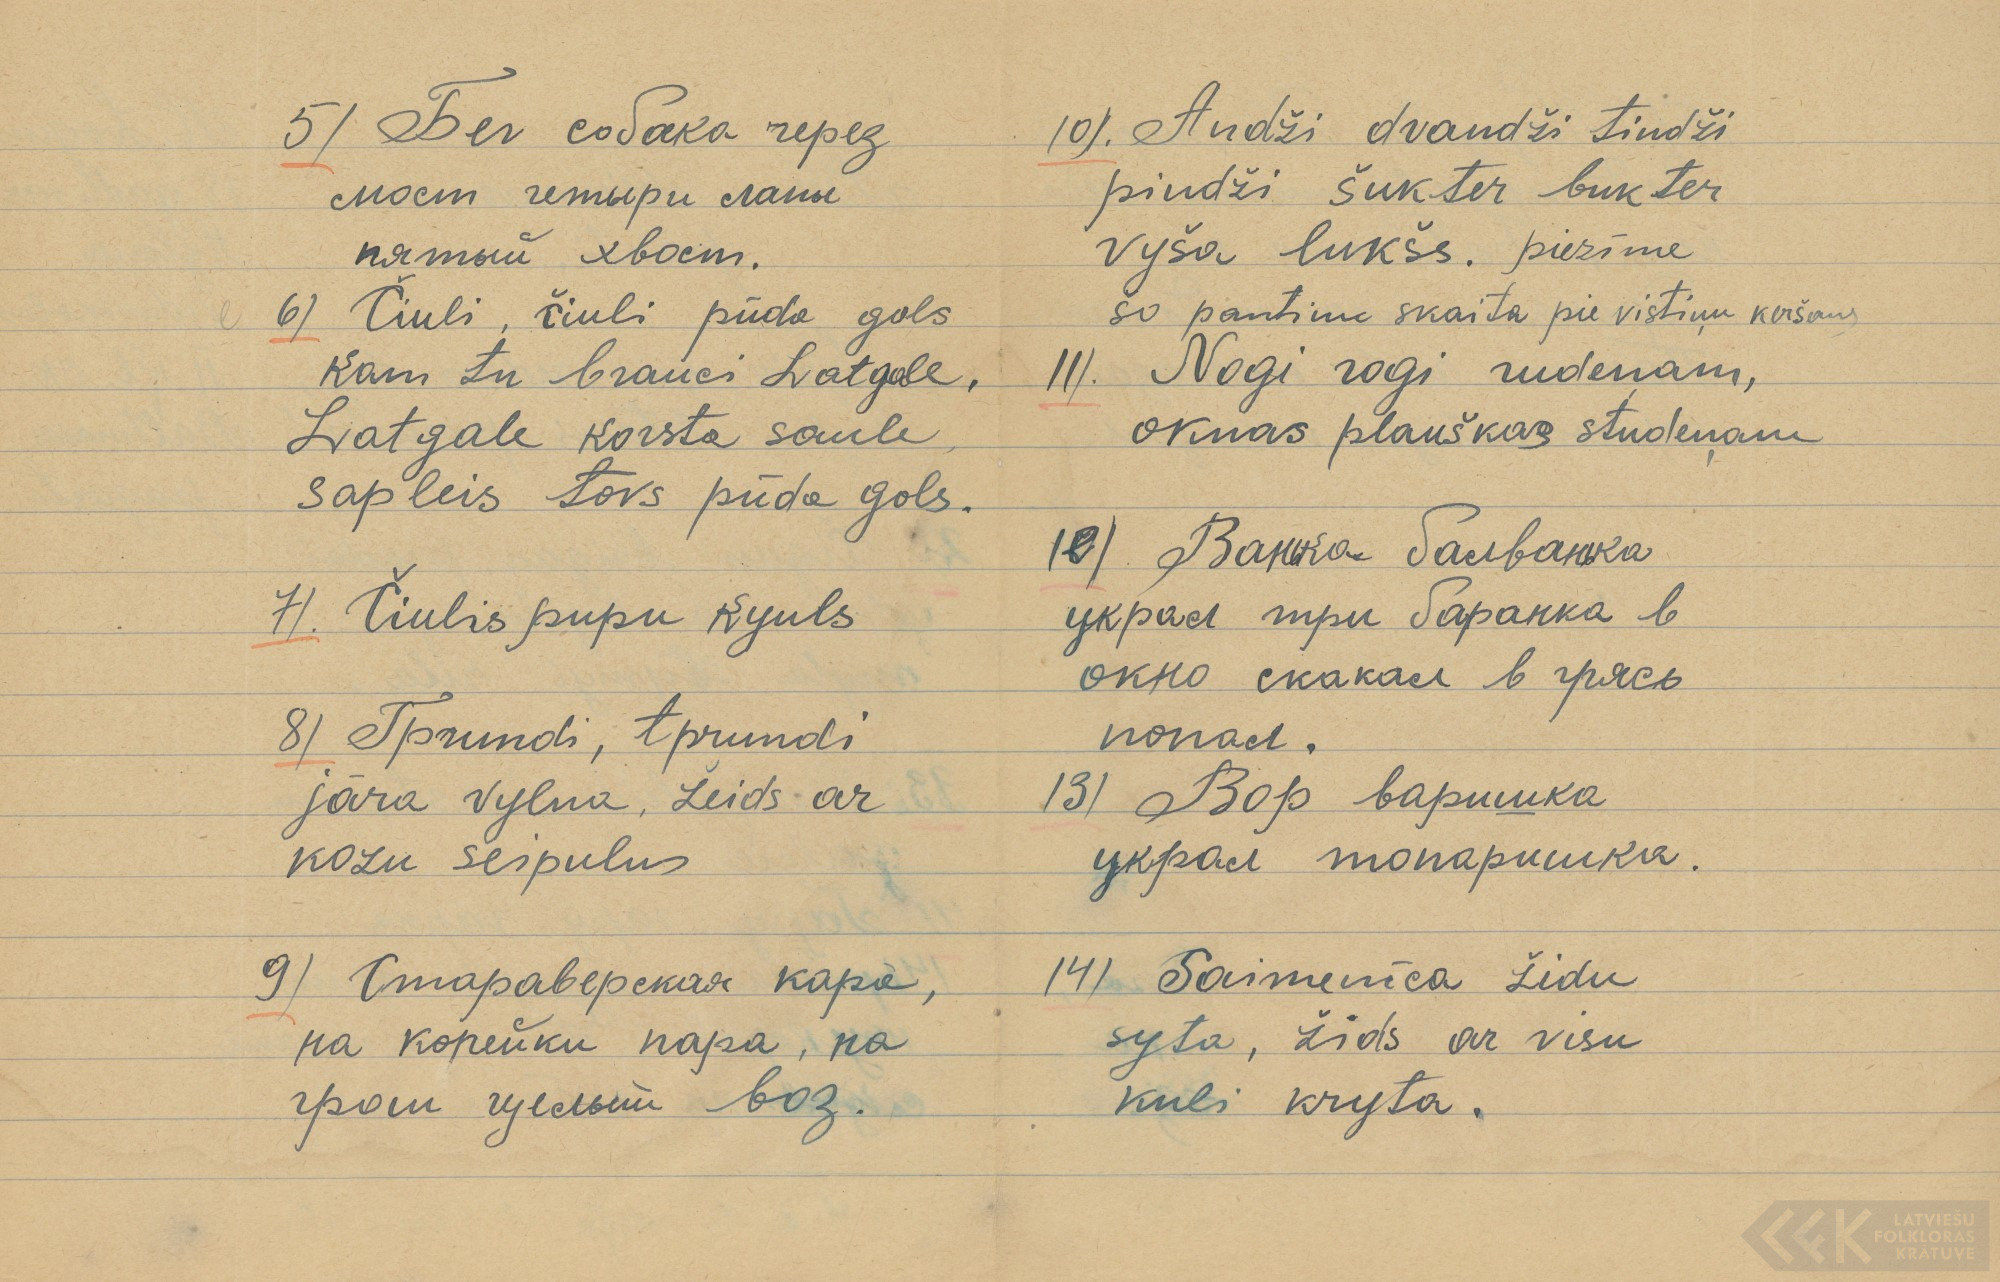 5) Бег собака через
мост четыри лапы
пятый хвост.
6) Čiuli, čiuli pūda gols
Kam tu brauci Latgale,
Latgale korsta saule,
sapleis tovs pūda gols.
7). Čiulis pupu kyuls
8) Tprundi, tprundi
jāra vylna, žeids ar
kozu seipulus
9) Стараверская кара,
на копейки пара, на
грош целый воз.
10). Andži dvandži tindži
pindži šukter bukter
vyša lukšs. piezīme
šo pantiņu skaita pie vistiņu keršanas
11). Nogi rogi rudeņam,
oknas plauškas studeņam
12) Ванька балванька
украл три баранка в
окно скакал в грясь
попал.
13) Вор варишка
украл топаришка.
14) Saimenīca židu
syta, žids ar visu
kuli kryta.
LATVIEŠU
FOLKLORAS
KRĀTUVE